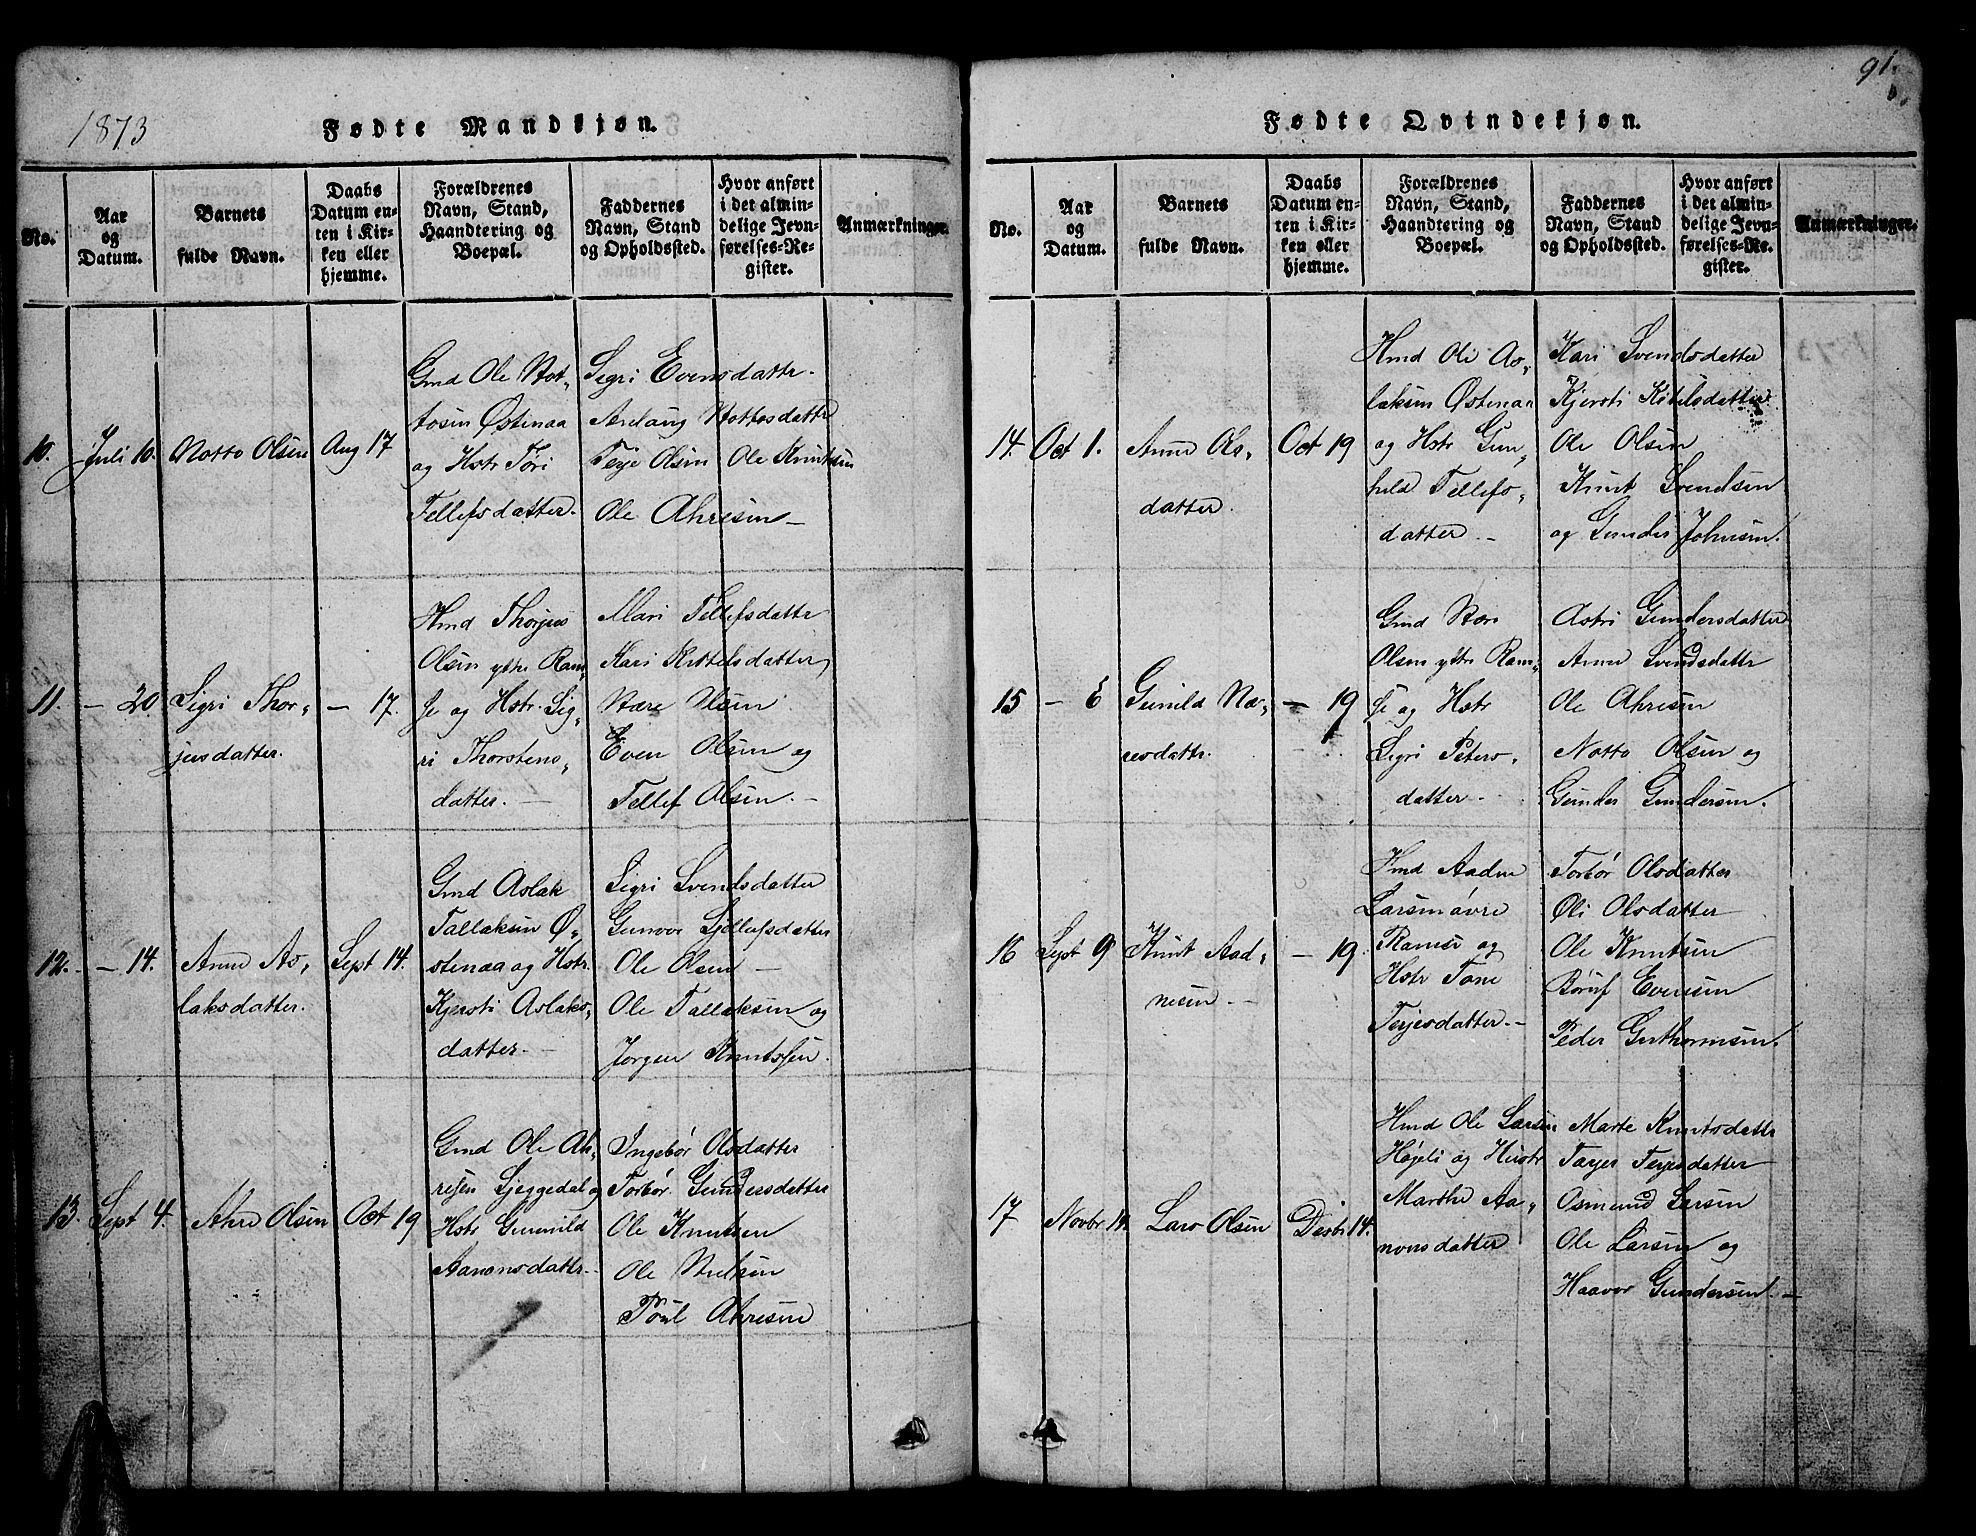 1873
Fødte Mandkjøn.
No.
Aar
og
Datum.
Barnets
fulde Navn.
Daabs
Datum en-
ten i Kir-
ken eller
hjemme.
Forældrenes
Navn, Stand,
Haandtering og
Boepæl.
Faddernes
Navn, Stand
og Opholdssted.
Hvor anført
i det almin-
delige Jevn-
førelses-Re-
gister.
Anmærkninger.
10.
Juli 10.
Notto Olsen
Aug 17
Gmd Ole Not-
tosen Østenaa
og Hstr Tori
Tellefsdatter.
Sigri Evensdattr.
Aslaug Nottosdattr
Terje Olsen Ole Knutsen
Ole Ahresen
11.
– 20.
Sigri Thor-
jusdatter.
– 17.
Hmd Thorjus
Olsen ytre Ram-
se og Hstr. Sig-
ri Thorstens-
datter. –
Mari Tellefsdattr
Kari Kittelsdatter
Nære Olsen
Even Olsen og
Tellef Olsen. –
12.
– 14.
Anne As-
laksdatter.
Sept 14.
Gmd Aslak
Tallaksen Ø-
stenaa og Hstr.
Kjersti Aslaks-
datter. –
Sigri Svendsdatter
Gunvor Sjellufsdatter
Ole Olsen –
Ole Tallaksen og
Jørgen Knutssen.
13.
Sept 4.
Ahre Olsen
Oct 19
Gmd Ole Ah-
resen Ljeggedal og
Hstr Gunnild
Aanonsdattr.
Ingebør Olsdatter
Torbør Gundersdatter
Ole Knutsen
Ole Nielsen
Poul Ahresen
91.
Fødte Qvindekjøn.
No.
Aar
og
Datum.
Barnets
fulde Navn.
Daabs
Datum en-
ten i Kir-
ken eller
hjemme.
Forældrenes
Navn, Stand,
Haandtering og
Boepæl.
Faddernes
Navn, Stand
og Opholdssted.
Hvor anført
i det almin-
delige Jevn-
førelses-Re-
gister.
Anmærkninger.
14.
Oct 1.
Anne Ols-
datter.
Oct 19
Hmd Ole As-
laksen Østenaa
og Hstr Gun-
hild Tellefs-
datter –
Kari Svendsdatter
Kjersti Kittelsdatter
Ole Olsen
Knut Svendsen
og Gunder Johnsen.
15
– 6
Gunild Næ-
resdattr.
– 19
Gmd Nære
Olsen ytre Ram-
se og Hstr
Sigri Peters-
datter –
Astri Gundersdatter
Anne Svendsdattr
Ole Ahresen
Notto Olsen og
Gunder Gundersen.
16
Sept 9
Knut Aad-
nesen –
– 19.
Hmd Aadne
Larsen øvre
Ramse og
Hstr Tone
Terjesdatter. –
Torbør Olsdatter
Øli Olsdatter
Ole Knutsen
Børuf Evensen
Peder Guthormsen.
17
Novbr 10.
Lars Olsen
Desbr 14.
Hmd Ole Larsen
Høgeli og Hustr
Marthe Aa-
nonsdatter
Marte Knutsdattr
Targer Terjesdatter
Osmund Larsen
Ole Larsen og
Haavor Gundersen. –